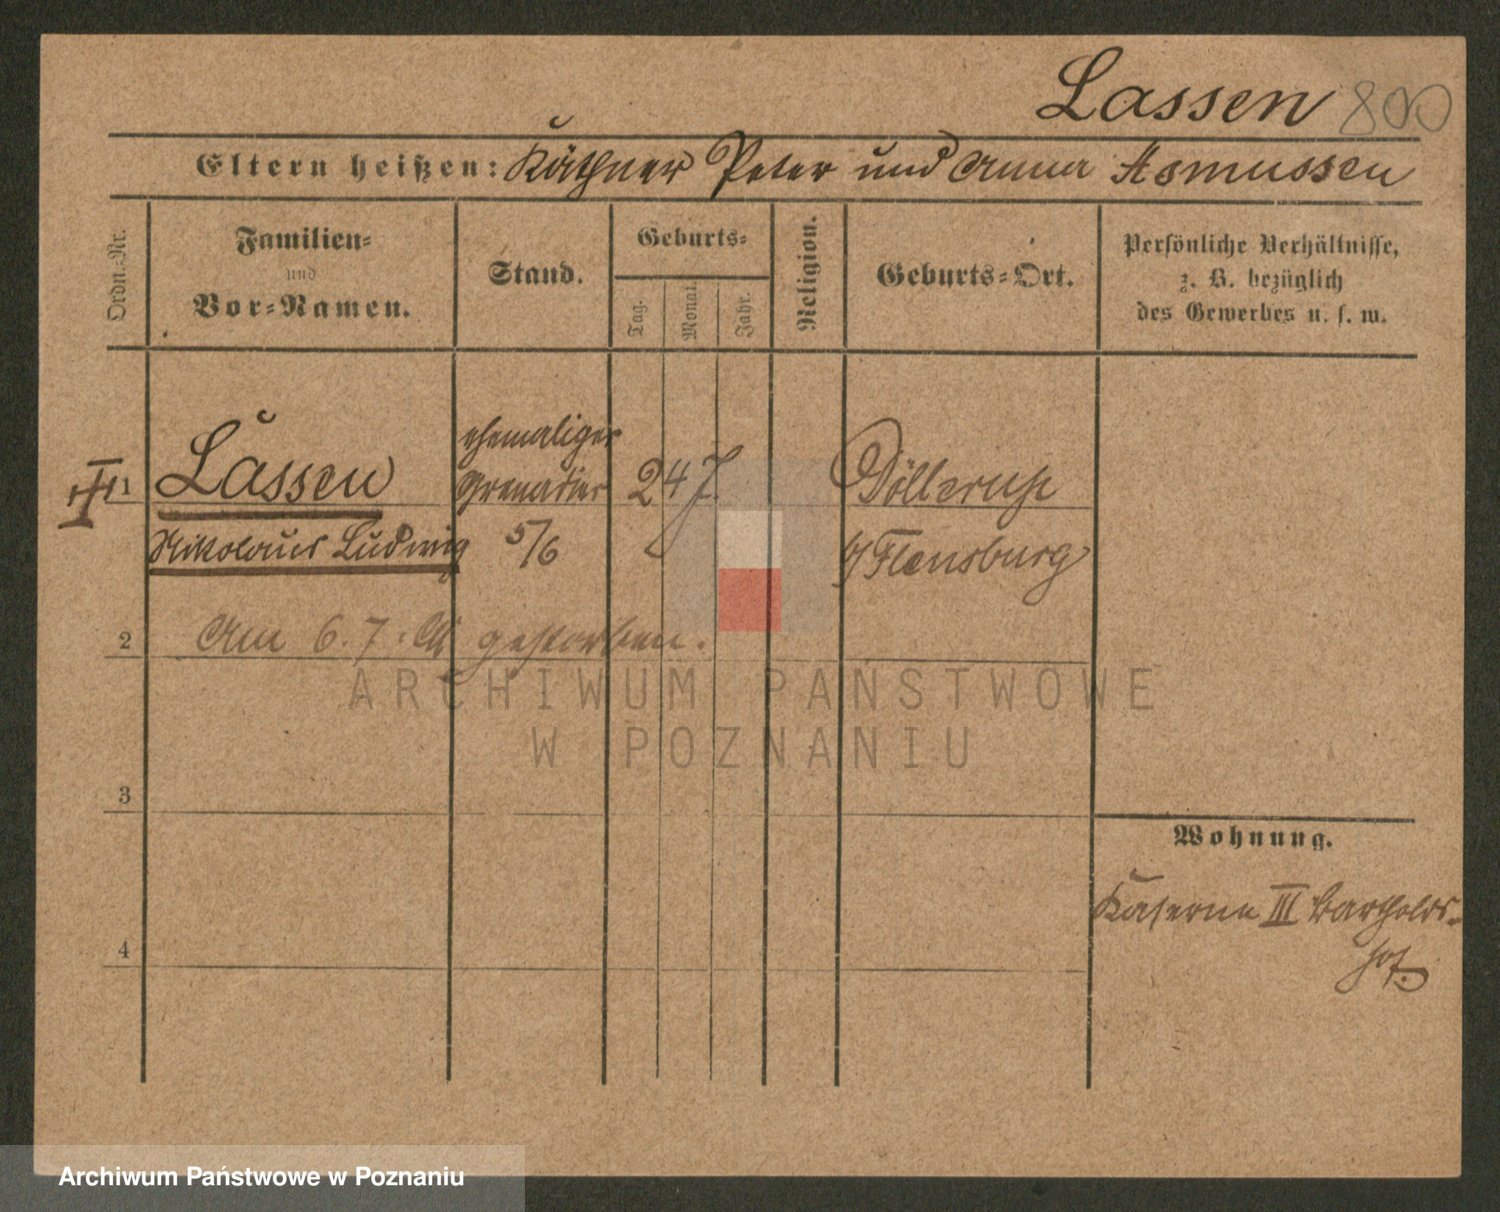 Lassen 800
Eltern heißen: Käthner Peter und Anna Asmussen
Ordn.-Nr.
Familien-
und
Vor-Namen.
Stand.
Geburts-
Tag.
Monat.
Jahr.
Religion.
Geburts-Ort.
Persönliche Verhältnisse,
z. B. bezüglich
des Gewerbes u. s. w.
1
Lassen
Nikolaus Ludwig
ehemaliger
Grenadier
5/6
24 J.
Döllerup
b/ Flensburg
2
Am 6. 7. gestorben.
3
4
Wohnung.
Kaserne III Bartholds-
hof.
ARCHIWUM PAŃSTWOWE
W POZNANIU
Archiwum Państwowe w Poznaniu